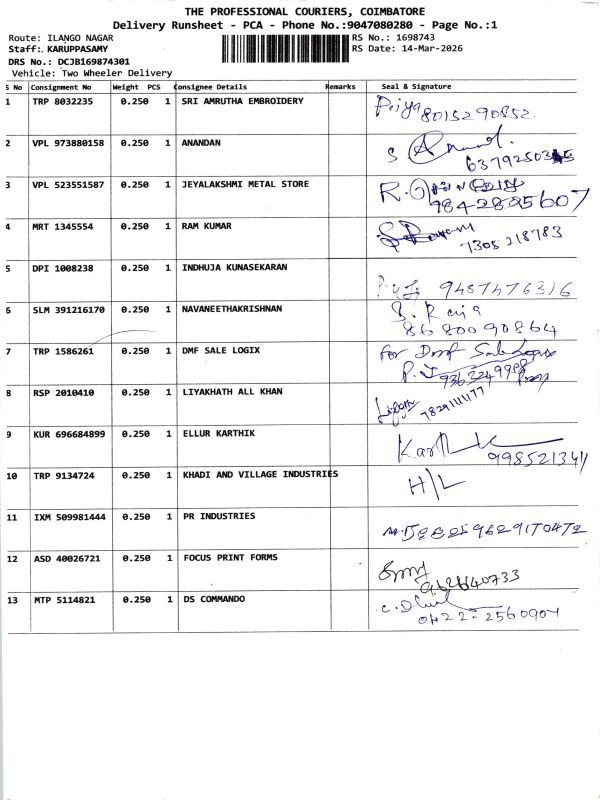 THE PROFESSIONAL COURIERS, COIMBATORE
Delivery Runsheet - PCA - Phone No.:9047080280 - Page No.:1
Route: ILANGO NAGAR RS No.: 1698743
Staff:. KARUPPASAMY RS Date: 14-Mar-2026
DRS No.: DCJB169874301
Vehicle: Two Wheeler Delivery
S No Consignment No Weight PCS Consignee Details Remarks Seal & Signature
1 TRP 8032235 0.250 1 SRI AMRUTHA EMBROIDERY Priya 8015290852
2 VPL 973880158 0.250 1 ANANDAN S Anand.
3 VPL 523551587 0.250 1 JEYALAKSHMI METAL STORE R.
9842885607
4 MRT 1345554 0.250 1 RAM KUMAR
7305218783
5 DPI 1008238 0.250 1 INDHUJA KUNASEKARAN 9487476316
6 SLM 391216170 0.250 1 NAVANEETHAKRISHNAN S. Raja
8680090864
7 TRP 1586261 0.250 1 DMF SALE LOGIX for Dmf
8 RSP 2010410 0.250 1 LIYAKHATH ALL KHAN
9 KUR 696684899 0.250 1 ELLUR KARTHIK Karthik
10 TRP 9134724 0.250 1 KHADI AND VILLAGE INDUSTRIES H/L
11 IXM 509981444 0.250 1 PR INDUSTRIES 9629170472
12 ASD 40026721 0.250 1 FOCUS PRINT FORMS
13 MTP 5114821 0.250 1 DS COMMANDO
0422-2560904